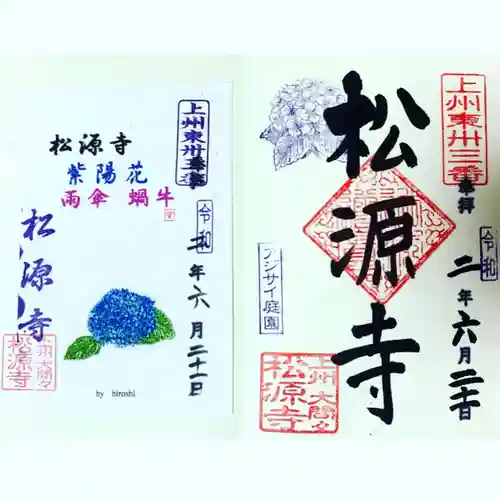 上州東卅三番
奉拝
令和
二年六月二十一日
松源寺
紫陽花
雨傘 蝸牛
松源寺
上州大間々
松源寺
by hiroshi
上州東卅三番
奉拝
令和
二年六月二十一日
松源寺
アジサイ庭園
上州大間々
松源寺